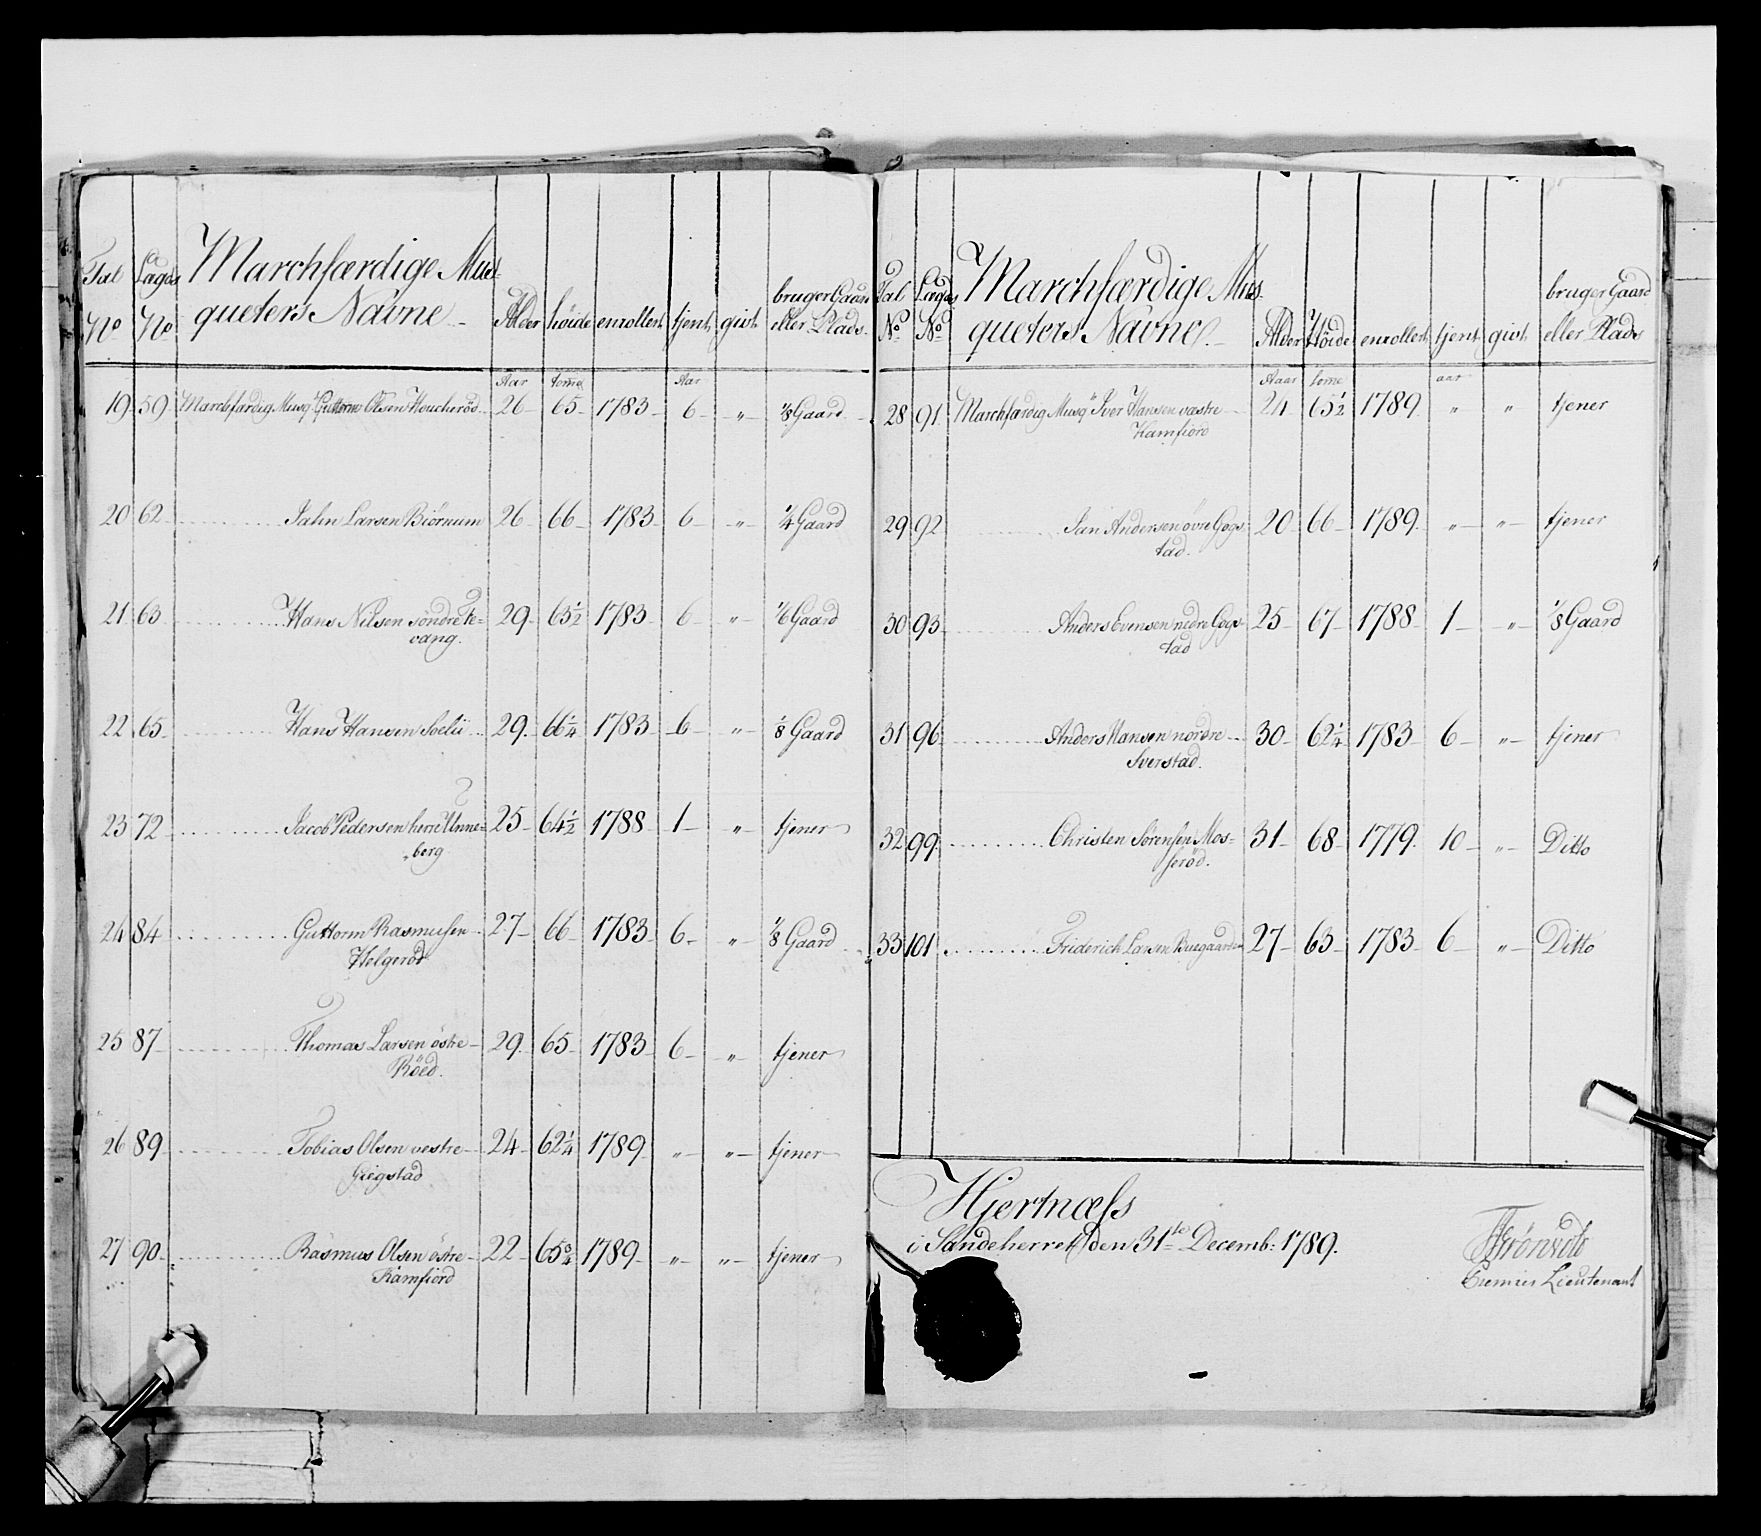 Tal Lægds Marchfærdige Mus-
No No queters Navne Alder høide enrollert tjent givt bruger Gaard eller Plads
Aar tome Aar
19 59 Marchfærdig Musqr Guttorm Olsen Houcheröd 26 65 1783 6 " 1/8 Gaard
20 62 Jahn Larsen Biörnum 26 66 1783 6 " 1/4 Gaard
21 63 Hans Nilsen söndre Ve- 29 63 1/2 1783 6 " 1/6 Gaard
vang.
22 65 Hans Hansen Soelii 29 66 1/4 1783 6 " 1/8 Gaard
23 72 Jacob Pedersen herre Unne- 25 64 1/2 1788 1 " tjener
berg
24 84 Guttorm Rasmusen 27 66 1783 6 " 1/8 Gaard
Helgeröd
25 87 Thomas Larsen östre 29 65 1783 6 " tjener
Röed.
26 89 Tobias Olsen vestre 24 62 1/4 1789 " " tjener
Giegstad
27 90 Rasmus Olsen östre 22 65 3/4 1789 " " tjener
Kamfiord
Tal Lægds Marchfærdige Mus-
No No queters Navne Alder Höide enrollert tjent givt bruger Gaard eller Plads
Aaar tome aar
28 91 Marchfærdig Musqr Iver Hansen vestre 24 65 1/2 1789 " " tjener
Kamfiord
29 92 Jan Andersen övre Gogs- 20 66 1789 " " tjener
tad.
30 93 Anders Evensen nedre Gogs- 25 67 1788 1 " 1/8 Gaard
tad
31 96 Anders Hansen nordre 30 62 1/4 1783 6 " tjener
Sverstad.
32 99 Christen Sörensen Mos- 31 68 1779 10 " Ditto
seröd.
33 101 Friderich Larsen Buegaarden 27 63 1783 6 " Ditto
Hjertnæss
i Sandeherret den 31te Decemb: 1789.
Premier Lieutenant